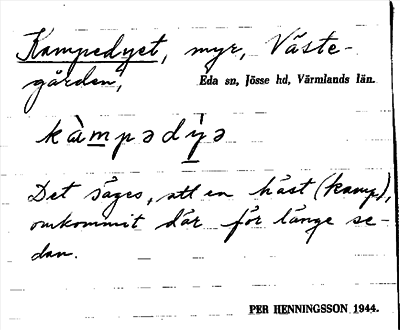 Kampedyet, myr, Väste-
gården,
Eda sn, Jösse hd, Värmlands län.
kàmpədỳə
Det säges, att en häst (kamp),
omkommit där för länge se-
dan.
PER HENNINGSSON 1944.